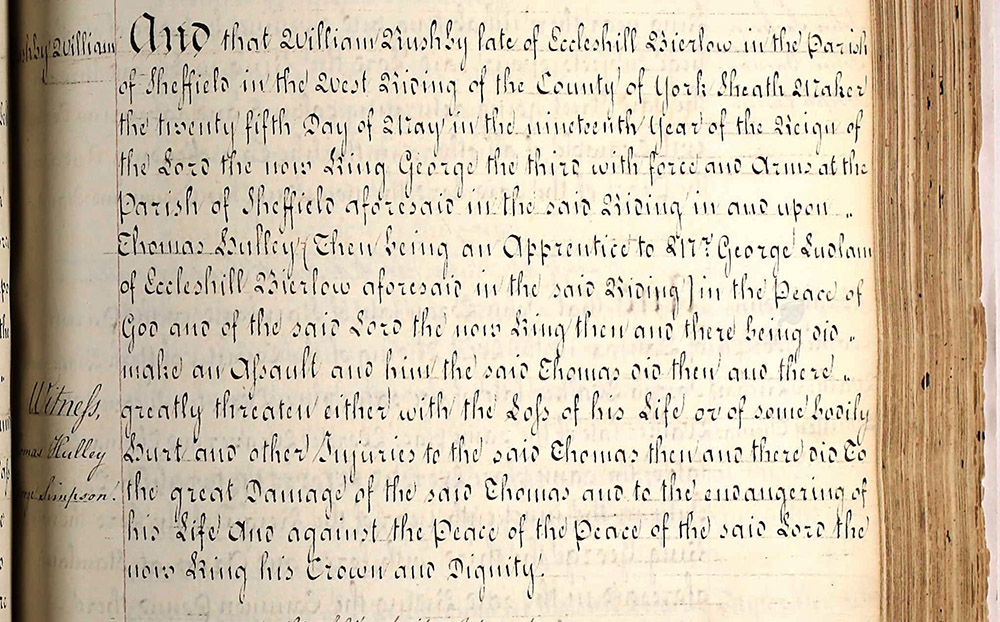 William
And that William Rushby late of Eccleshill Bierlow in the Parish
of Sheffield in the West Riding of the County of York Sheath Maker
the twenty fifth Day of May in the nineteenth Year of the Reign of
the Lord the now King George the third with force and Arms at the
Parish of Sheffield aforesaid in the said Riding in and upon
Thomas Hulley [Then being an Apprentice to Mr. George Ludlam
of Eccleshill Bierlow aforesaid in the said Riding] in the Peace of
God and of the said Lord the now King then and there being did
make an Assault and him the said Thomas did then and there
greatly threaten either with the Loss of his Life or of some bodily
Hurt and other Injuries to the said Thomas then and there did To
the great Damage of the said Thomas and to the endangering of
his Life And against the Peace of the Peace of the said Lord the
now King his Crown and Dignity.
Witness,
Hulley
Simpson.